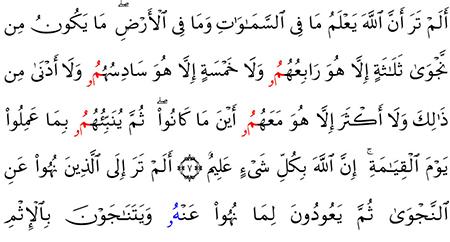 أَلَمْ تَرَ أَنَّ ٱللَّهَ يَعْلَمُ مَا فِى ٱلسَّمَـٰوَٰتِ وَمَا فِى ٱلْأَرْضِ ۖ مَا يَكُونُ مِن
نَّجْوَىٰ ثَلَـٰثَةٍ إِلَّا هُوَ رَابِعُهُمُۥ وَلَا خَمْسَةٍ إِلَّا هُوَ سَادِسُهُمُۥ وَلَا أَدْنَىٰ مِن
ذَٰلِكَ وَلَا أَكْثَرَ إِلَّا هُوَ مَعَهُمُۥ أَيْنَ مَا كَانُوا۟ ۖ ثُمَّ يُنَبِّئُهُمُۥ بِمَا عَمِلُوا۟
يَوْمَ ٱلْقِيَـٰمَةِ ۚ إِنَّ ٱللَّهَ بِكُلِّ شَىْءٍ عَلِيمٌ ﴿٧﴾ أَلَمْ تَرَ إِلَى ٱلَّذِينَ نُهُوا۟ عَنِ
ٱلنَّجْوَىٰ ثُمَّ يَعُودُونَ لِمَا نُهُوا۟ عَنْهُۥ وَيَتَنَـٰجَوْنَ بِٱلْإِثْمِ